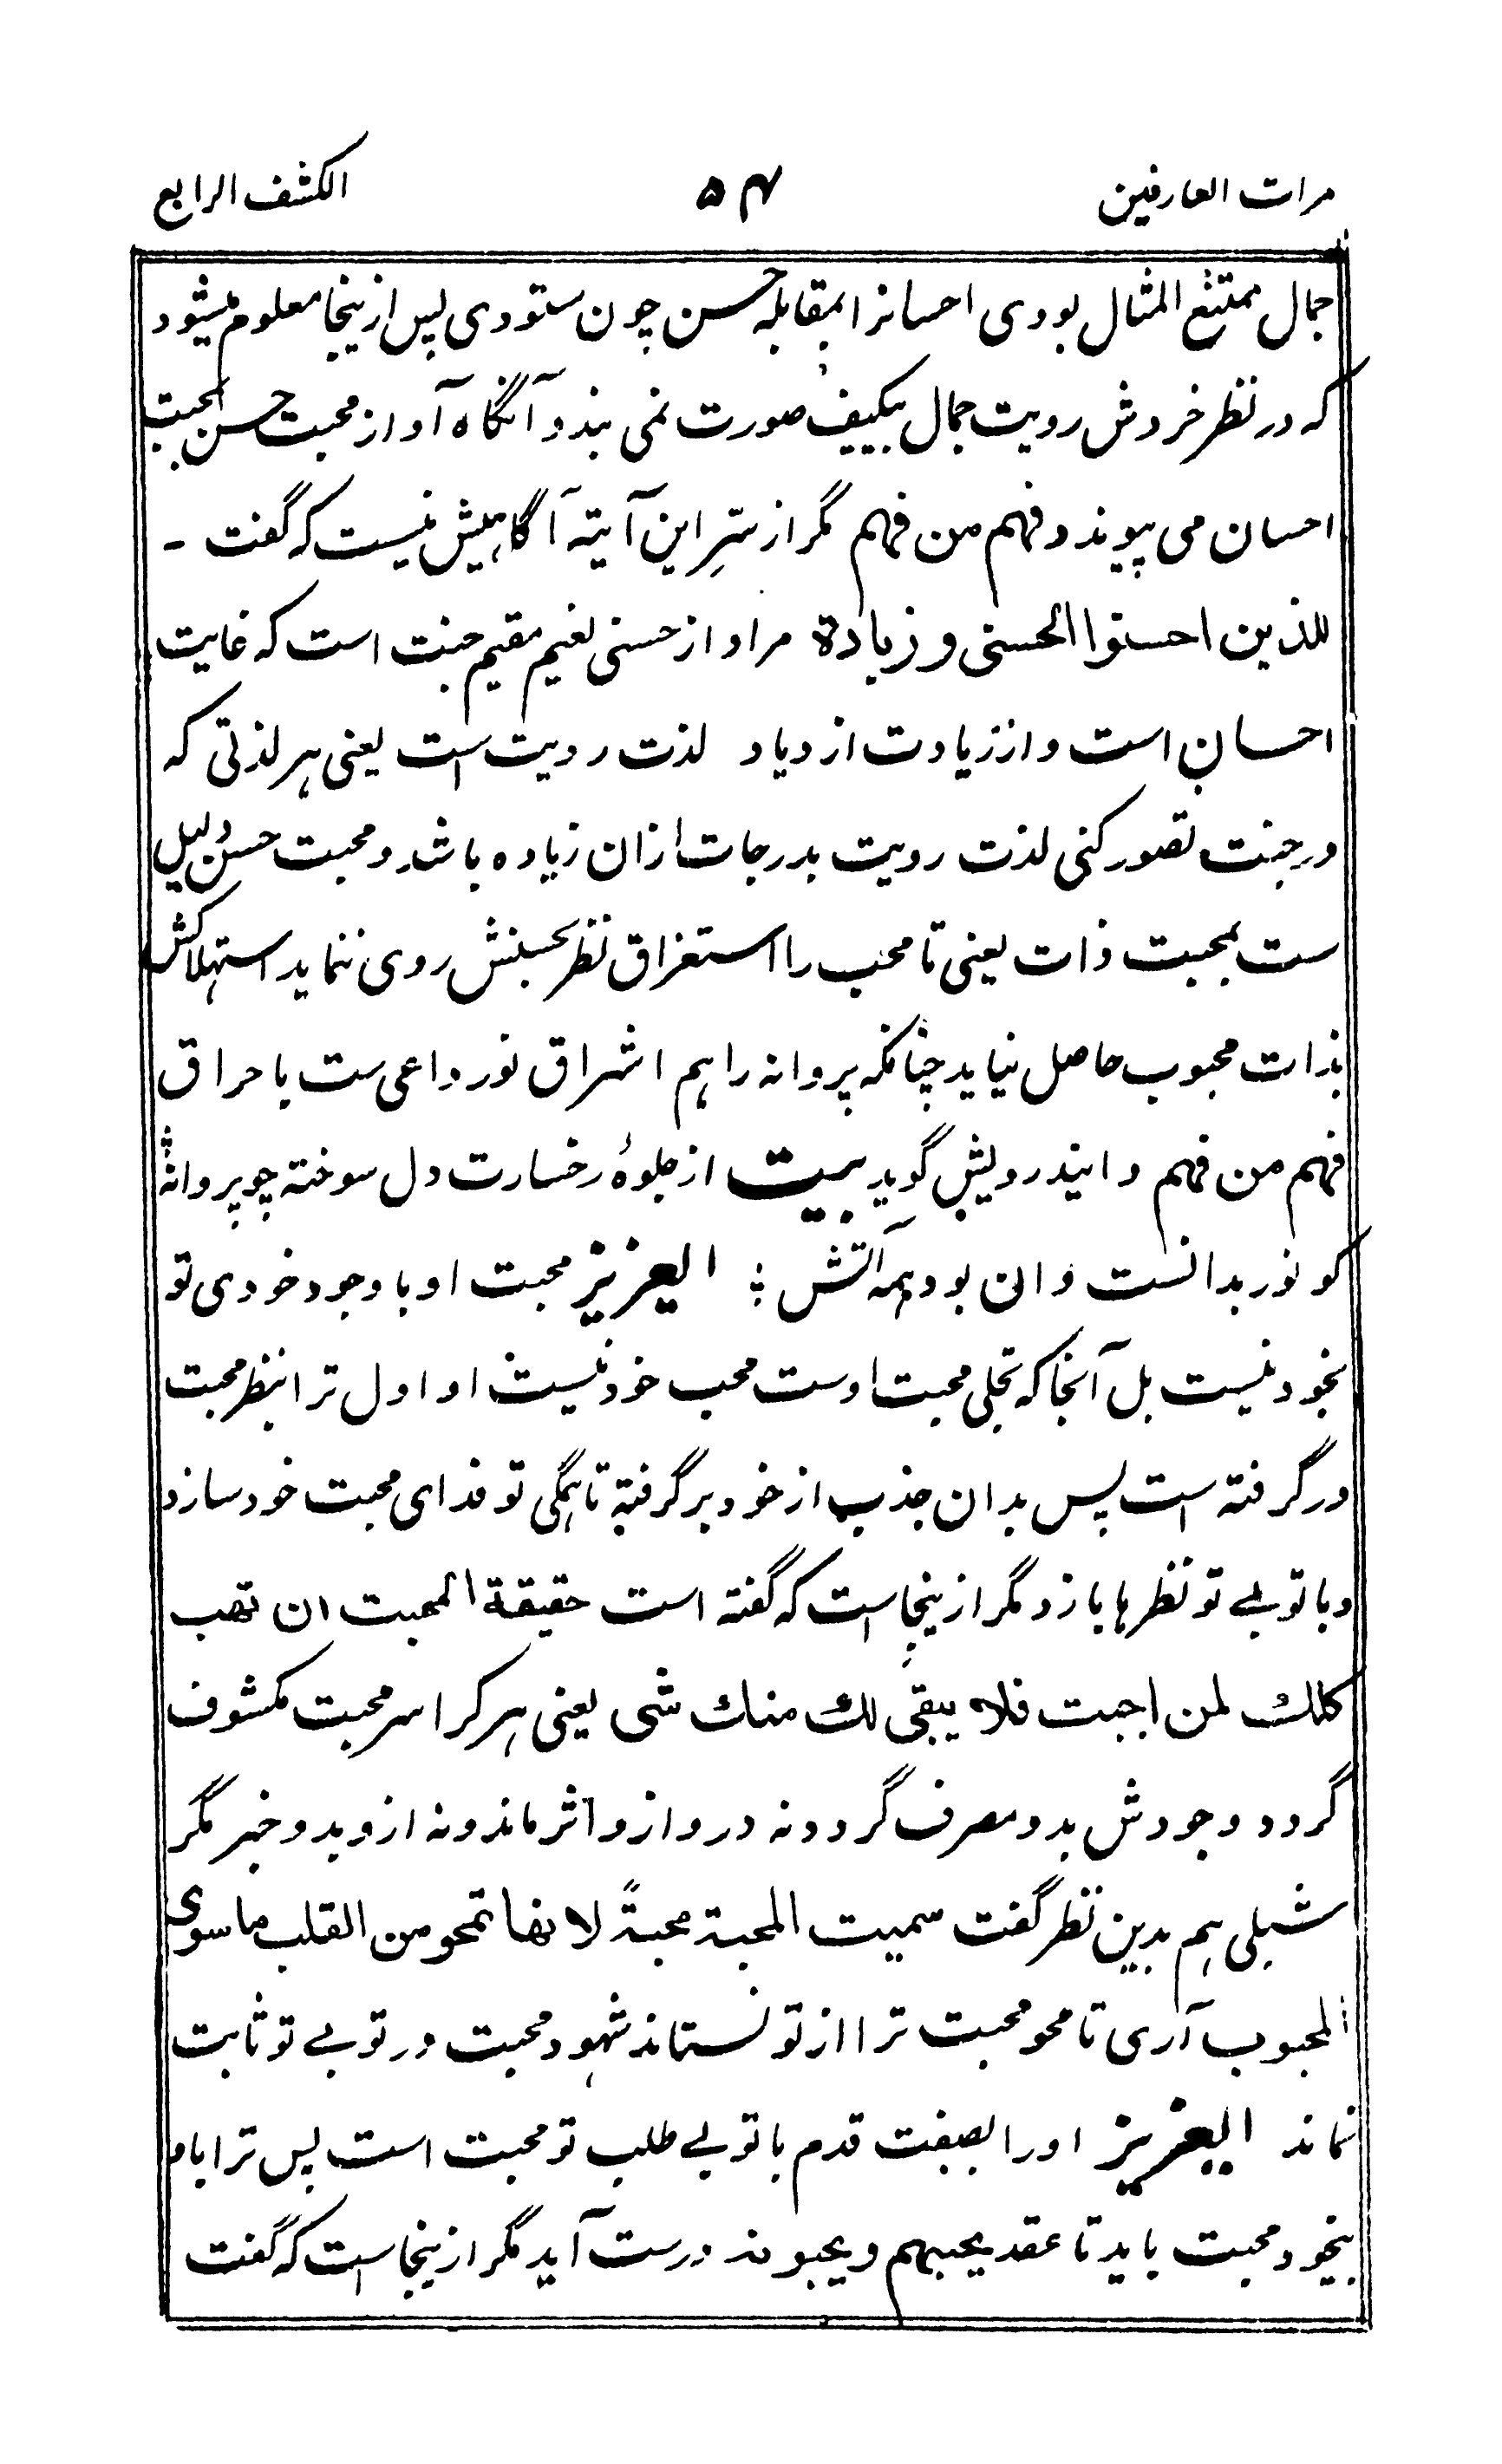 مرات العارفین ۵۴ الکشف الرابع
جمال ممتنع المثال بودی احسانرا بمقابلہ حسن چون ستودی پس ازینجا معلوم میشود
کہ در نظر خردش رویت جمال بیکیف صورت نمی بندد آنگاہ آواز محبت حسن بمحبت
احسان می پیوندد فہم من فہم مگر از سرِّ این آیتہ آگاہیش نیست کہ گفت -
للذین احسنوا الحسنی و زیادة مراد از حسنی نعیم مقیم جنت است کہ غایت
احسان است و از زیادت ازدیاد لذت رویت است یعنی ہر لذتی کہ
در جنت تصور کنی لذت رویت بدرجات ازان زیادہ باشد و محبت حسن دلیل
ست بمحبت ذات یعنی تا محب را استغراق نظر بحسنش روی ننماید استہلاکش
بذات محبوب حاصل نیاید چنانکہ پروانہ را ہم اشراق نور داعی ست باحراق
فہم من فہم و ایندرویش گوید بیت از جلوۂ رخسارت دل سوختہ چو پروانہ
کو نور بدانست و ان بود ہمہ آتش ؛ ایعزیز محبت او با وجود خودی تو
بخود نیست بل آنجا کہ تجلی محبت اوست محب خود نیست او اول ترا بنظر محبت
در گرفتہ است پس بدان جذب از خود بر گرفتہ تا ہمگی تو فدای محبت خود سازد
و با تو بے تو نظرہا بازد مگر ازینجاست کہ گفتہ است حقیقة المحبت ان تهب
کلك لمن احببت فلا یبقی لك منك شی یعنی ہر کرا سر محبت مکشوف
گردد وجودش بدو مصرف گردد نہ درو ازو اثر ماند و نہ ازو بدو خبر مگر
شبلی ہم بدین نظر گفت سمیت المحبة محبةً لانها تمحو من القلب ما سوی
المحبوب آری تا محو محبت ترا از تو نستاند شہود محبت در تو بے تو ثابت
نماند ایعزیز او را بصفت قدم با تو بے طلب تو محبت است پس ترا باو
بیخود محبت باید تا عقد یحبهم و یحبونہ درست آید مگر ازینجاست کہ گفت